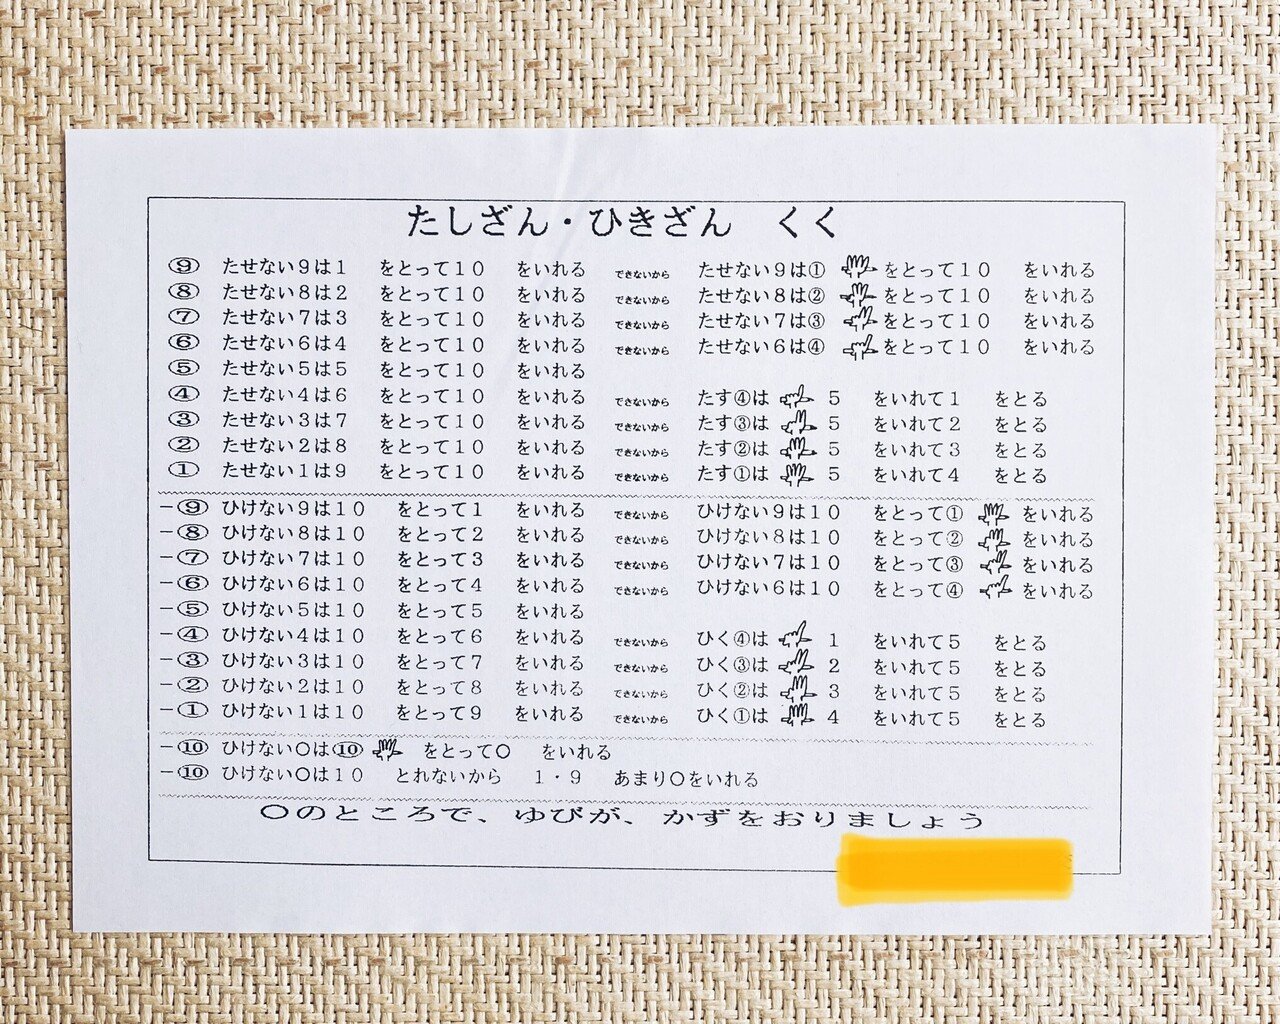 たしざん・ひきざん くく
⑨ たせない9は1 をとって10 をいれる できないから たせない9は① をとって10 をいれる
⑧ たせない8は2 をとって10 をいれる できないから たせない8は② をとって10 をいれる
⑦ たせない7は3 をとって10 をいれる できないから たせない7は③ をとって10 をいれる
⑥ たせない6は4 をとって10 をいれる できないから たせない6は④ をとって10 をいれる
⑤ たせない5は5 をとって10 をいれる
④ たせない4は6 をとって10 をいれる できないから たす④は 5 をいれて1 をとる
③ たせない3は7 をとって10 をいれる できないから たす③は 5 をいれて2 をとる
② たせない2は8 をとって10 をいれる できないから たす②は 5 をいれて3 をとる
① たせない1は9 をとって10 をいれる できないから たす①は 5 をいれて4 をとる
−⑨ ひけない9は10 をとって1 をいれる できないから ひけない9は10 をとって① をいれる
−⑧ ひけない8は10 をとって2 をいれる できないから ひけない8は10 をとって② をいれる
−⑦ ひけない7は10 をとって3 をいれる できないから ひけない7は10 をとって③ をいれる
−⑥ ひけない6は10 をとって4 をいれる できないから ひけない6は10 をとって④ をいれる
−⑤ ひけない5は10 をとって5 をいれる
−④ ひけない4は10 をとって6 をいれる できないから ひく④は 1 をいれて5 をとる
−③ ひけない3は10 をとって7 をいれる できないから ひく③は 2 をいれて5 をとる
−② ひけない2は10 をとって8 をいれる できないから ひく②は 3 をいれて5 をとる
−① ひけない1は10 をとって9 をいれる できないから ひく①は 4 をいれて5 をとる
−⑩ ひけない○は⑩ をとって○ をいれる
−⑩ ひけない○は10 とれないから 1・9 あまり○をいれる
○のところで、ゆびが、かずをおりましょう